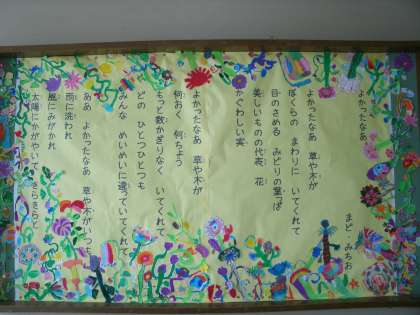 よかったなあ
まど・みちお
よかったなあ　草や木が
ぼくらの　まわりに　いてくれて
目のさめる　みどりの葉っぱ
美しいものの代表　花
かぐわしい実
よかったなあ　草や木が
何おく　何ちょう
もっと数かぎりなく　いてくれて
どの　ひとつひとつも
みんな　めいめいに違っていてくれて
ああ　よかったなあ　草や木がいつも
雨に洗われ
風にみがかれ
太陽にかがやいて　きらきらと